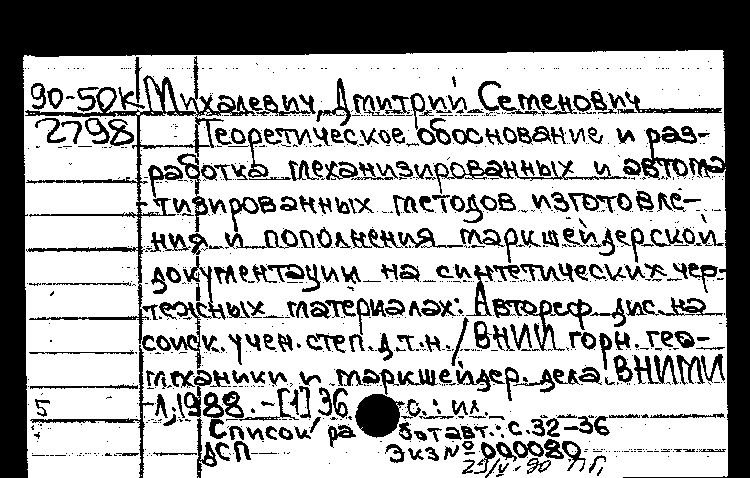 90-50к Михалевич, Дмитрий Семенович
2798 Теоретическое обоснование и раз-
работка механизированных и автома
тизированных методов изготовле-
ния и пополнения маркшейдерской
документации на синтетических чер-
тежных материалах: Автореф. дис. на
соиск. учен. степ. д.т.н. / ВНИИ горн. гео-
механики и маркшейдер. дела. ВНИМИ
5 -Л, 1988. - [1] 36 с.: ил.
Список ра бот авт.: с. 32-36
ДСП Экз № 000080
29/V-90